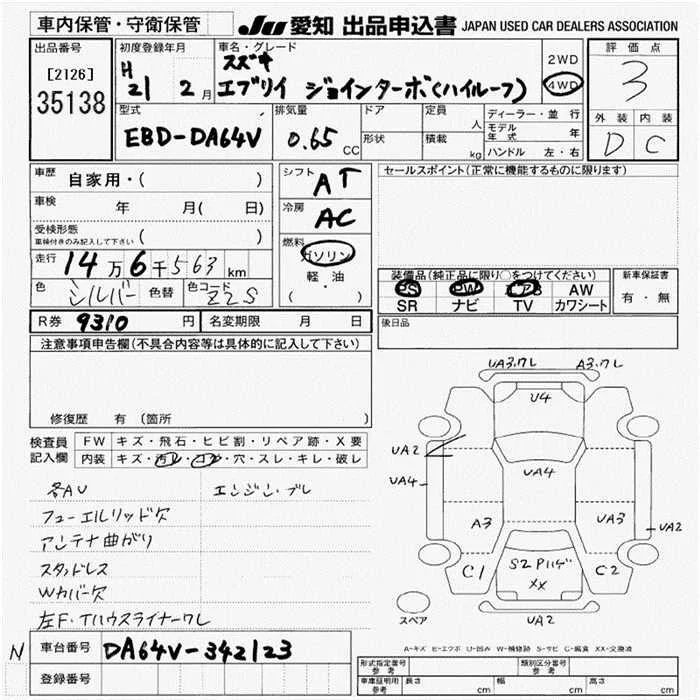 車内保管・守衛保管
JU 愛知 出品申込書 JAPAN USED CAR DEALERS ASSOCIATION
出品番号
[2126]
35138
初度登録年月
H21 2月
車名・グレード
スズキ
エブリイ ジョインターボ(ハイルーフ)
2WD
4WD
評価点
3
外装 内装
D C
型式
EBD-DA64V
排気量
0.65 CC
ドア
形状
定員 人
積載 kg
ディーラー・並行
モデル年式 年
ハンドル 左・右
車歴 自家用・( )
車検 年 月( 日)
受検形態
車検付きのみ記入して下さい ( )
走行 14万6千563km
色 シルバー 色替 色コード Z2S
シフト AT
冷房 AC
燃料
ガソリン
軽・油
( ・ )
セールスポイント(正常に機能するものに限ります)
装備品(純正品に限り○をつけてください)
PS PW エアB AW
SR ナビ TV カワシート
新車保証書
有・無
後日品
R券 9310円 名変期限 月 日
注意事項申告欄(不具合内容等は具体的に記入して下さい)
修復歴 有 (箇所 )
検査員記入欄
FW キズ・飛石・ヒビ割・リペア跡・X要
内装 キズ・汚レ・コゲ・穴・スレ・キレ・破レ
各AU エンジン・ブレ
フューエルリッド欠
アンテナ曲がり
スタッドレス
Wカバー欠
左F・Tハウスライナーワレ
UA3.ワレ A3.ワレ
U4
UA2
UA4
UA4
A3
UA3
UA2
C1
S2Pハゲ
XX
C2
UA2
スペア
A-キズ E-エクボ U-凹み W-補修跡 S-サビ C-腐食 XX-交換済
N 車台番号 DA64V-342123
登録番号
形式指定番号 参考
類別区分番号 参考
車庫証明用 参考 長さ cm 幅 cm 高さ cm